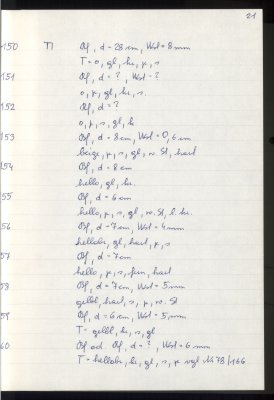 21
150 TI Bf, d = 28 cm, Wst = 8 mm
T = o, gl, hr, k, s
151 Bf, d = ?, Wst = ?
o, k, gl, hr, s.
152 Bf, d = ?
o, k, s, gl, h
153 Bf, d = 8 cm, Wst = 0,6 cm
beige, k, s, gl, w. St, hart
154 Bf, d = 8 cm
hello, gl, hr.
55 Bf, d = 6 cm
hello, k, s, gl, w. St, l. hr.
56 Bf, d = 7 cm, Wst = 4 mm
hellobr, gl, hart, k, s
57 Bf, d = 7 cm
hello, k, s, fein, hart
58 Bf, d = 7 cm, Wst = 5 mm
gelbl, hart, s, k, w. St
59 Bf, d = 6 cm, Wst = 5 mm
T = gelbl, hr, s, gl
60 Bf od. Of, d = ?, Wst = 6 mm
T = hellobr, hr, gl, s, k vgl Nr 78/166